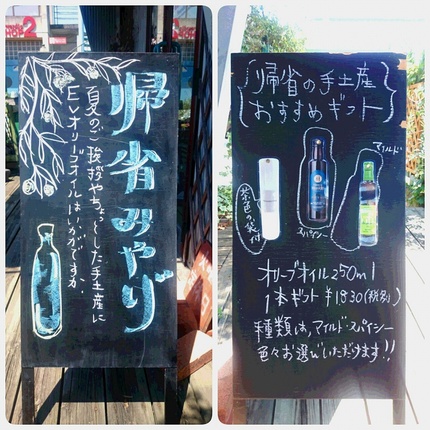 帰省みやげ
夏のご挨拶やちょっとした手土産に
EVオリーブオイルはいかがですか。
帰省の手土産
おすすめギフト
マイルド
スパイシー
茶色の袋付
オリーブオイル250ml
1本ギフト ¥1830(税別)
種類は、マイルド・スパイシー
色々お選びいただけます!!